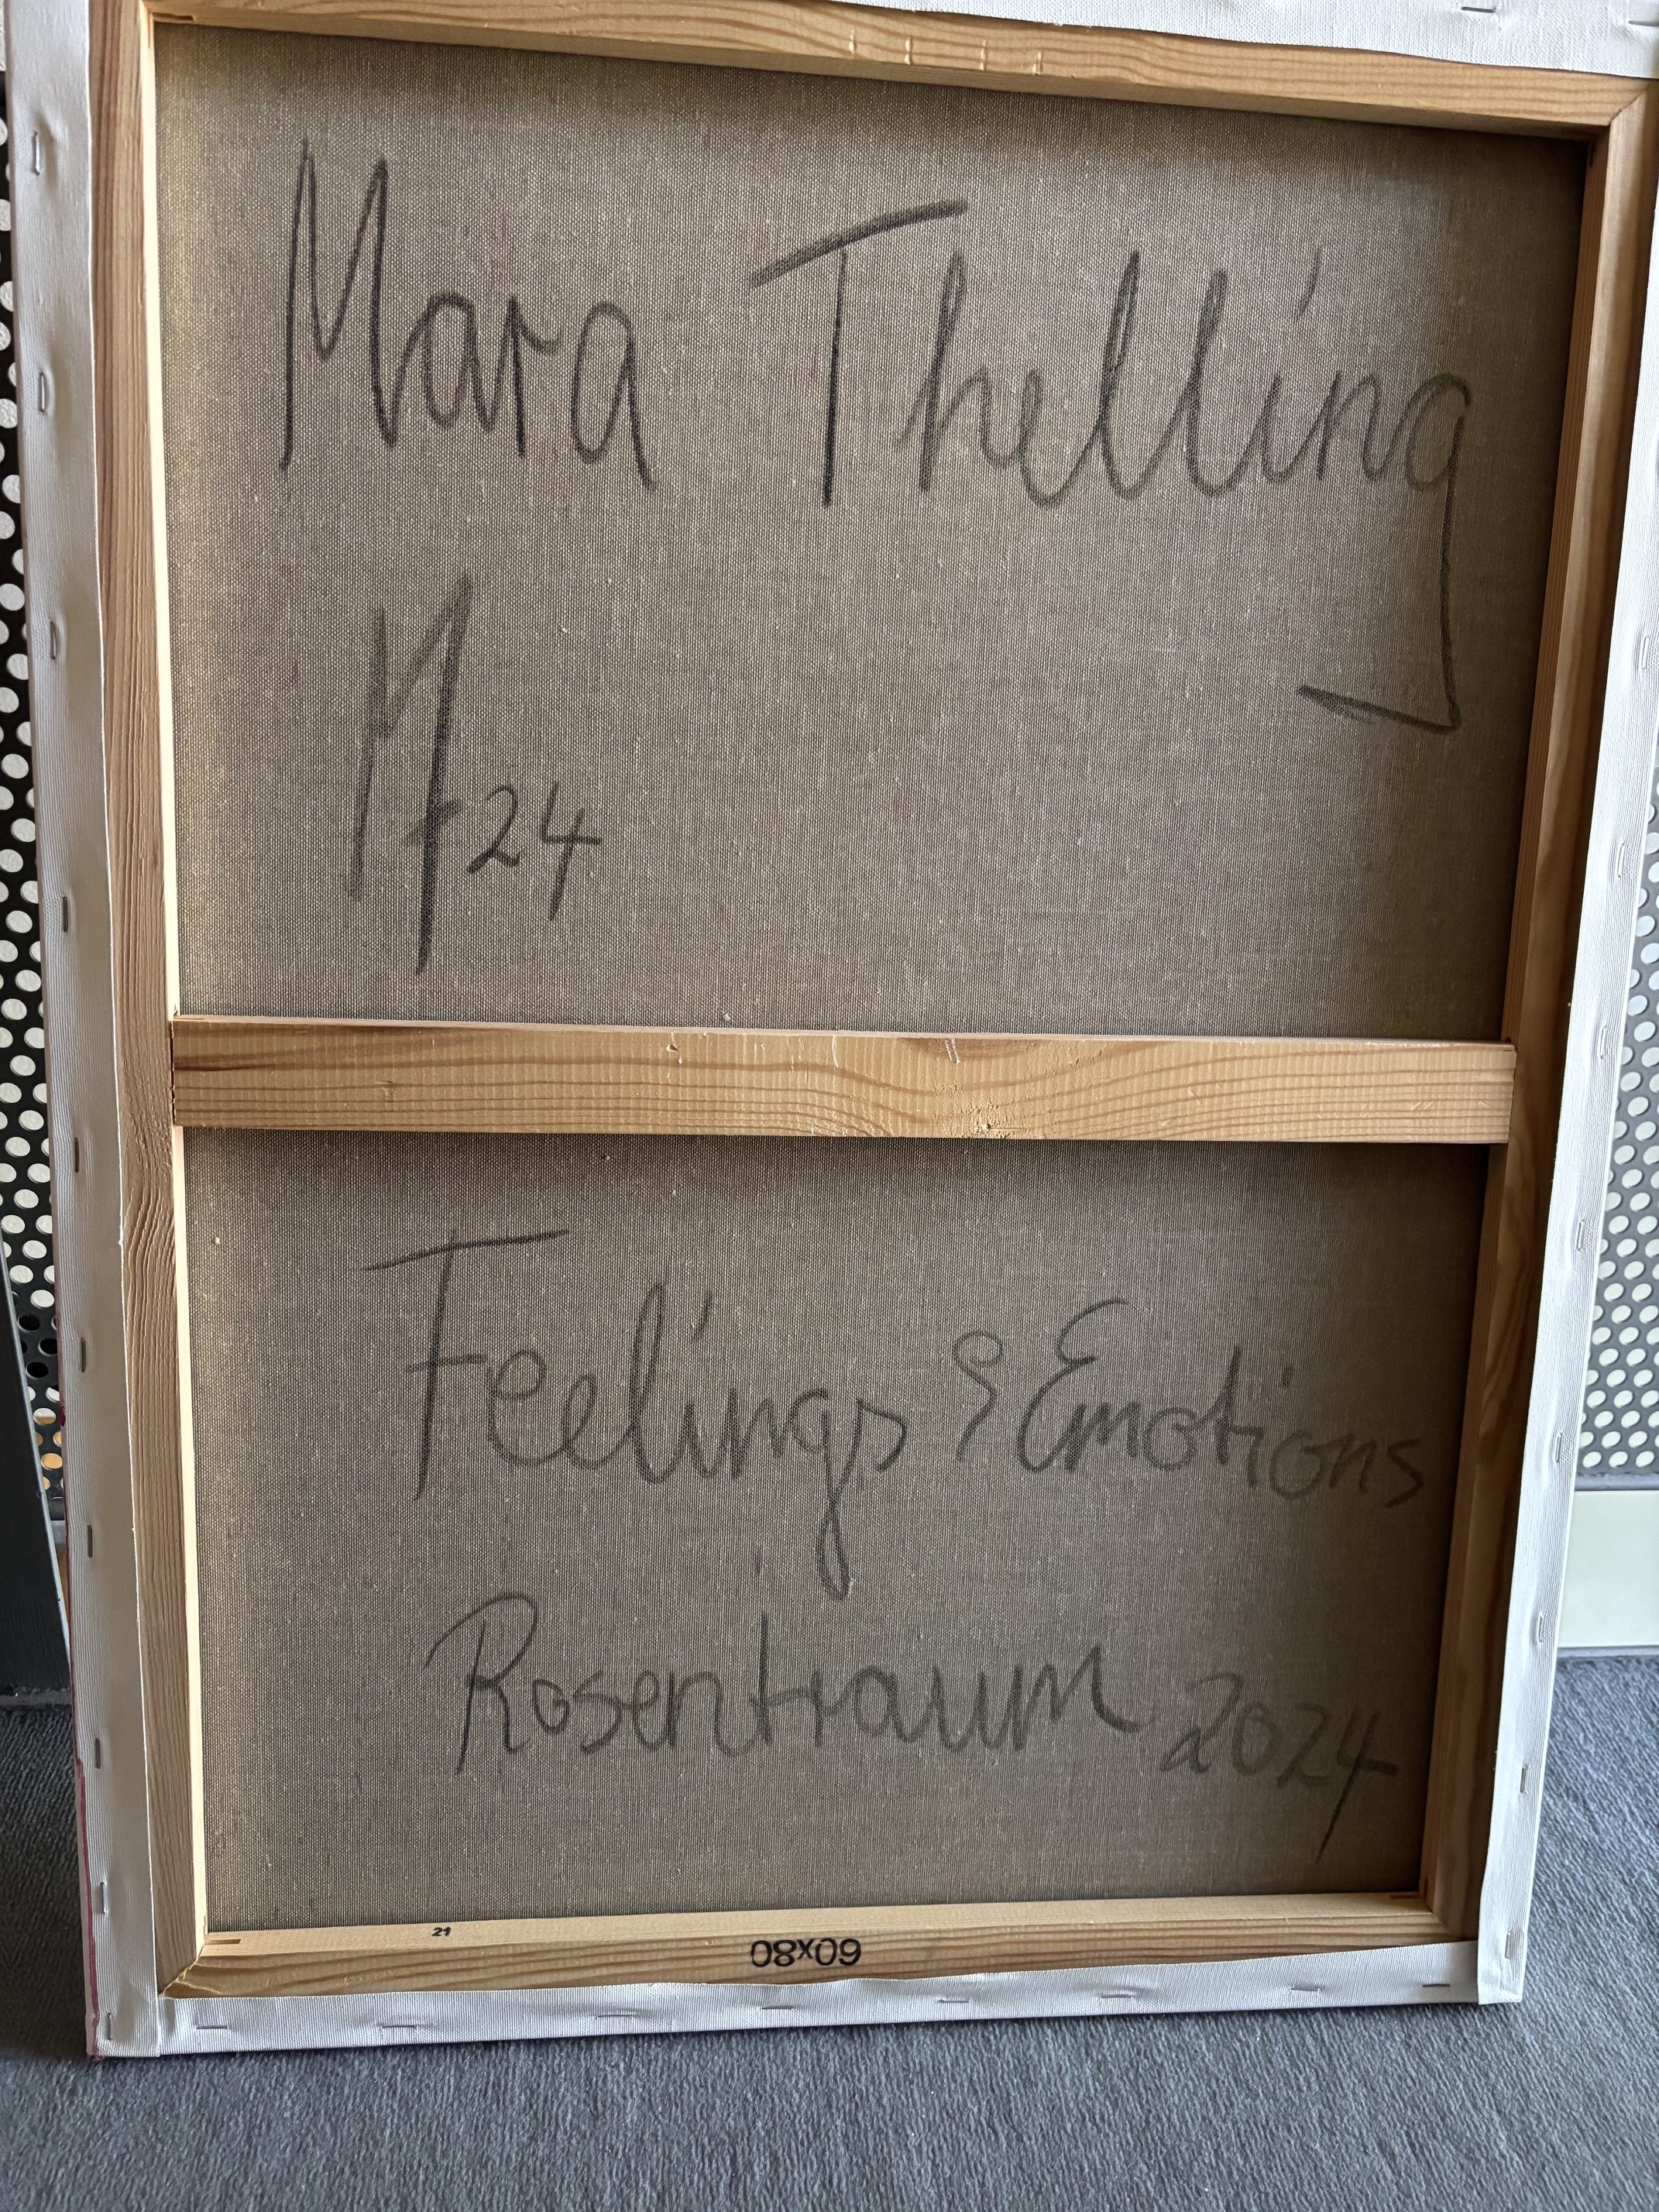 Mara Thelling
M 24
Feelings & Emotions
Rosentraum 2024
21
60x80